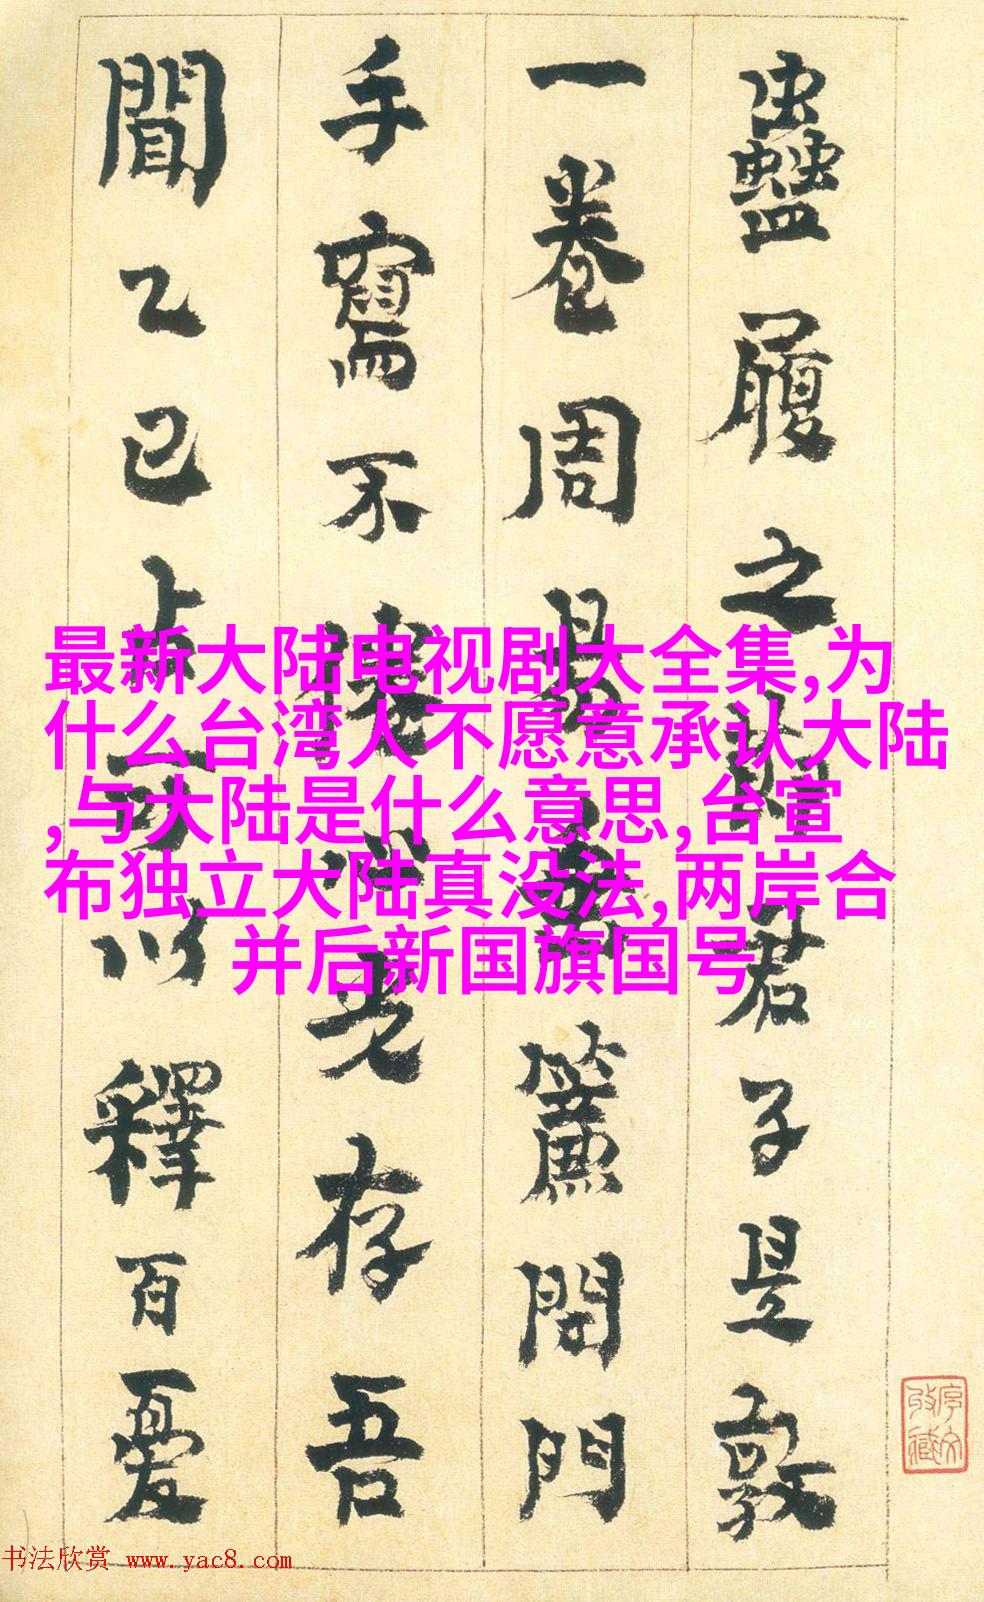 蠱履之君子是敦
一卷周易簾閉門
手寫不存吾
聞乙巳占可以釋百憂
最新大陆电视剧大全集,为
什么台湾人不愿意承认大陆
,与大陆是什么意思,台宣
布独立大陆真没法,两岸合
并后新国旗国号
书法欣赏 www.yac8.com